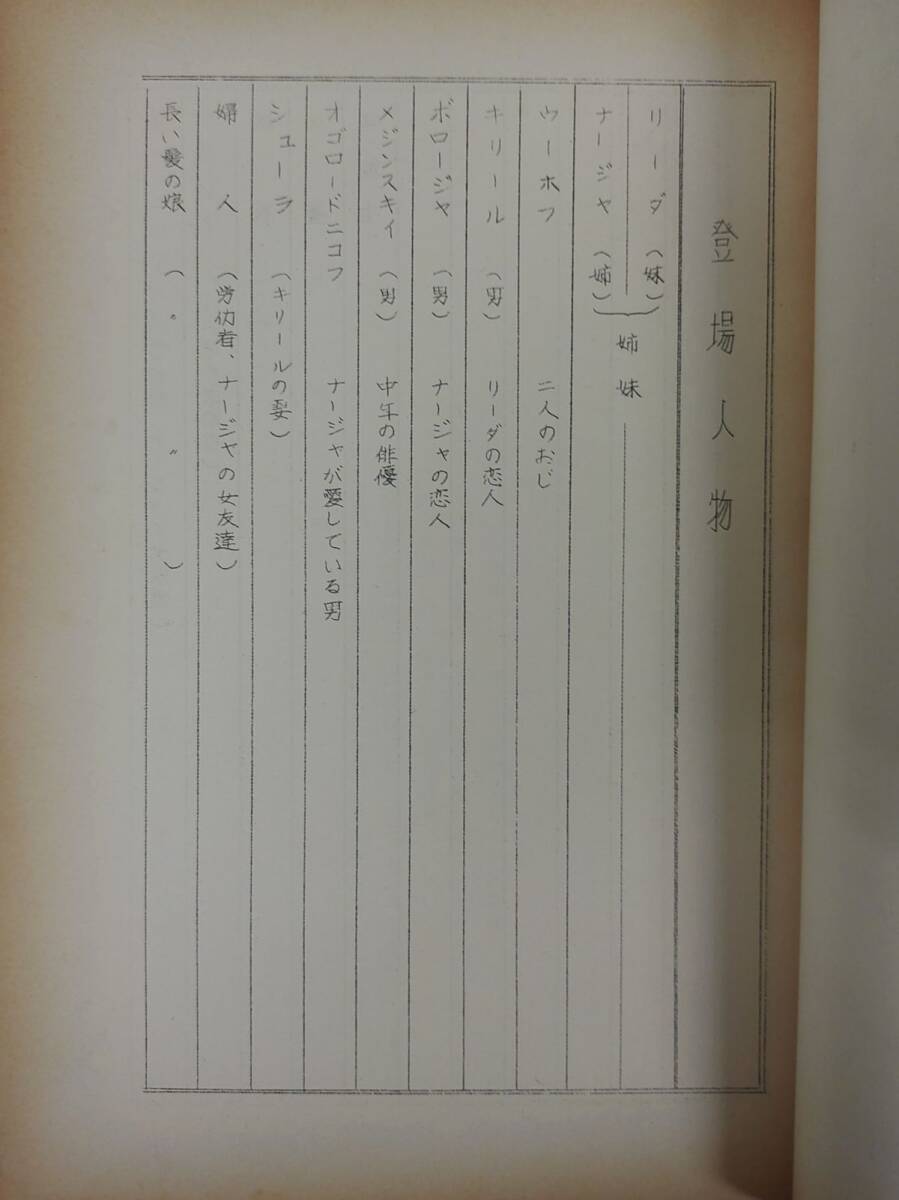 登場人物
リーダ（妹）
ナージャ（姉）
姉妹
ウーホフ 二人のおじ
キリール（男） リーダの恋人
ボロージャ（男） ナージャの恋人
メジンスキイ（男） 中年の俳優
オゴロードニコフ ナージャが愛している男
シューラ（キリールの妻）
婦人（労仂者、ナージャの女友達）
長い髪の娘（〃 〃）